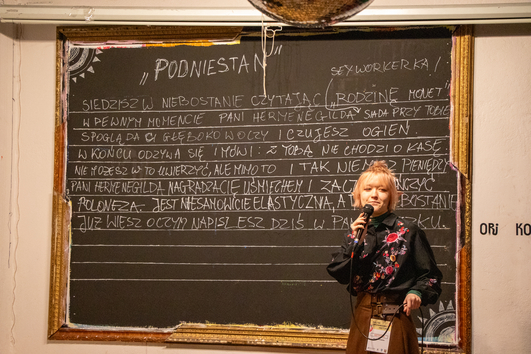 „PODNIESTAN”
SEXWORKERKA!
SIEDZISZ W NIEBOSTANIE CZYTAJĄC „RODZINĘ MONET”
W PEWNYM MOMENCIE PANI HERMENEGILDA SIADA PRZY TOBIE
SPOGLĄDA CI GŁĘBOKO W OCZY I CZUJESZ OGIEŃ
W KOŃCU ODZYWA SIĘ I MÓWI: Z TOBĄ NIE CHODZI O KASĘ.
NIE MOŻESZ W TO UWIERZYĆ, ALE MIMO TO I TAK NIE MASZ PIENIĘDZY
PANI HERMENEGILDA NAGRADZA CIĘ UŚMIECHEM I
POLONEZA. JEST NIESAMOWICIE ELASTYCZNA, A
JUŻ WIESZ O CZYM NAPISZESZ DZIŚ W
ORJ KO